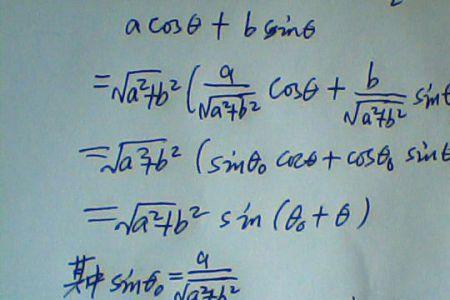 a cosθ + b sinθ
=√a²+b² (a/√a²+b² cosθ + b/√a²+b² sin
=√a²+b² (sinθ₀ cosθ + cosθ₀ sin
=√a²+b² sin (θ₀ + θ)
其中 sinθ₀ = a/√a²+b²